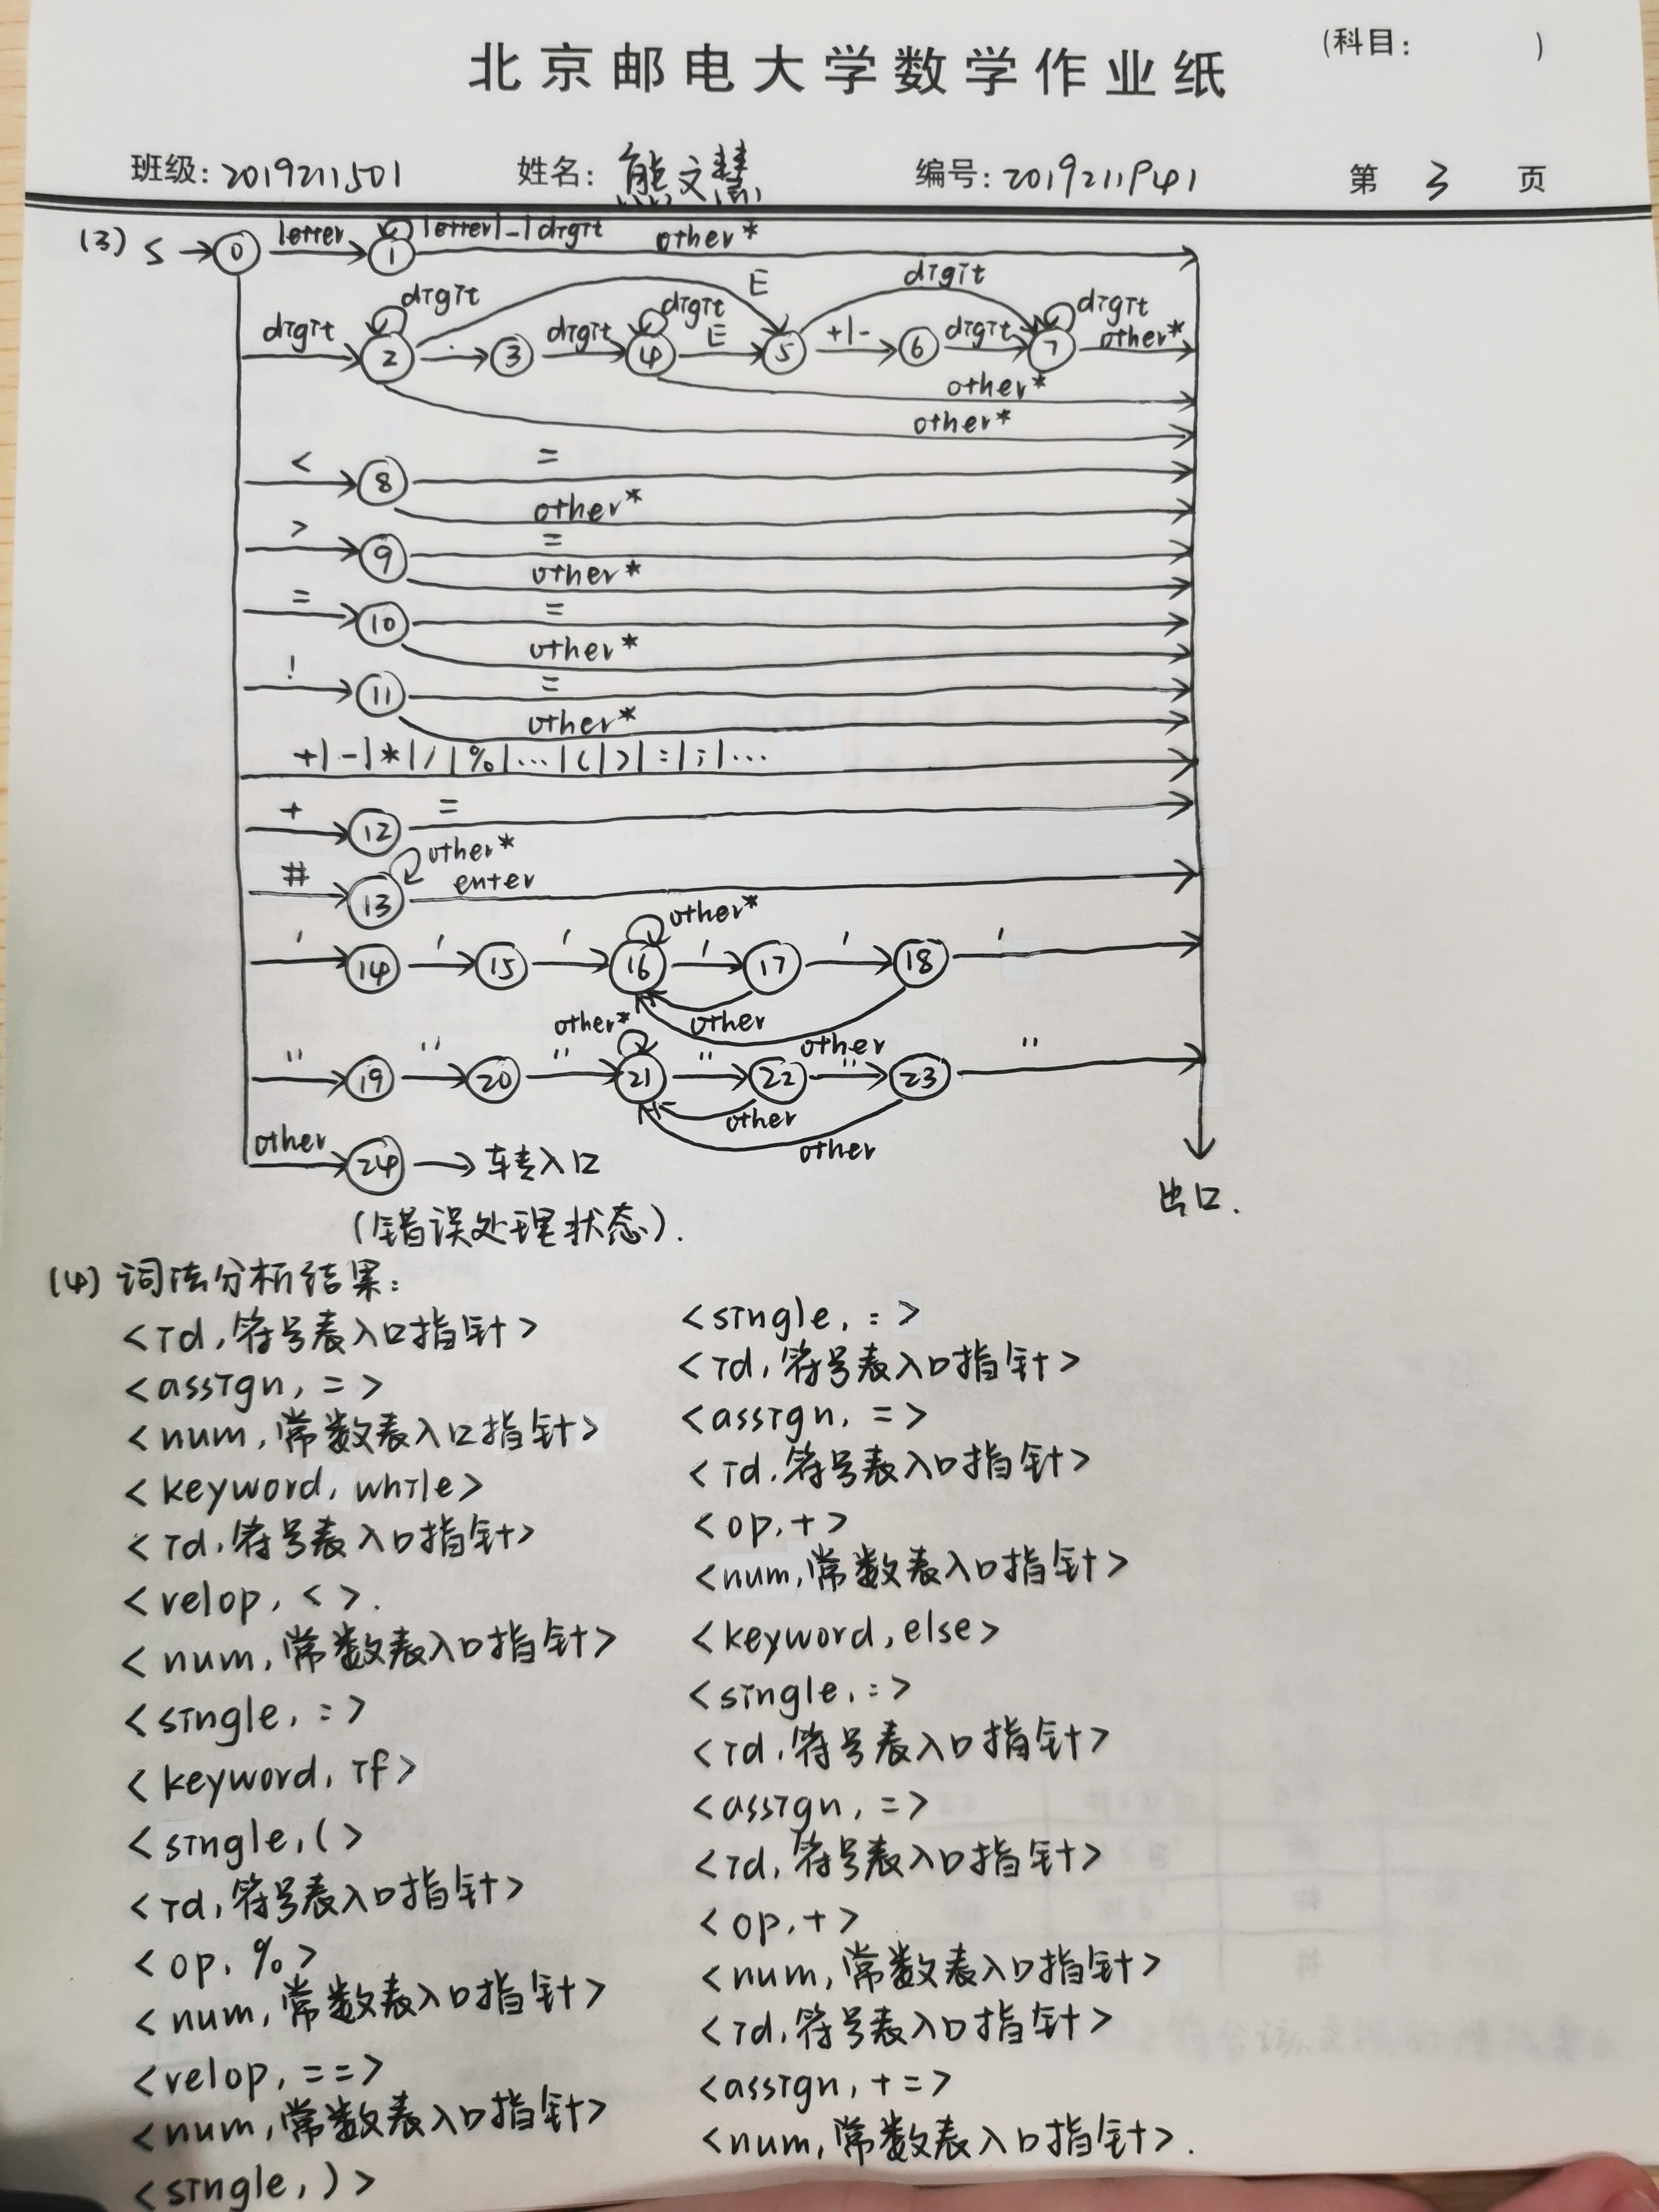 (科目:      )
北京邮电大学数学作业纸
班级: 2019211501 姓名: 熊文慧 编号: 2019211941 第 3 页
(3) S → 0 letter 1 letter|_|digit other*
digit 2 digit . 3 digit 4 digit E 5 +|- 6 digit 7 digit other*
E
digit
other*
other*
< 8 =
other*
> 9 =
other*
= 10 =
other*
! 11 =
other*
+|-|*|/|%|…|(|)|:|;|…
+ 12 =
# 13 other*
enter
' 14 ' 15 ' 16 other* ' 17 ' 18 '
other
other
" 19 " 20 " 21 other* " 22 " 23 "
other
other
other 24 → 转入口
(错误处理状态).
出口.
(4) 词法分析结果:
<id, 符号表入口指针>
<assign, =>
<num, 常数表入口指针>
<keyword, while>
<id, 符号表入口指针>
<relop, < >.
<num, 常数表入口指针>
<single, : >
<keyword, if>
<single, ( >
<id, 符号表入口指针>
<op, %>
<num, 常数表入口指针>
<relop, ==>
<num, 常数表入口指针>
<single, ) >
<single, : >
<id, 符号表入口指针>
<assign, =>
<id, 符号表入口指针>
<op, +>
<num, 常数表入口指针>
<keyword, else>
<single, : >
<id, 符号表入口指针>
<assign, =>
<id, 符号表入口指针>
<op, +>
<num, 常数表入口指针>
<id, 符号表入口指针>
<assign, +=>
<num, 常数表入口指针>.